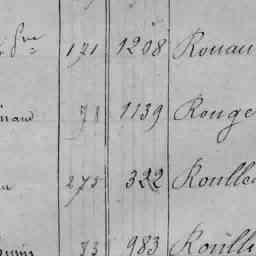 fne 171 1208 Rouau
naud 78 1139 Rouge
275 322 Rouille
73 983 Rouill